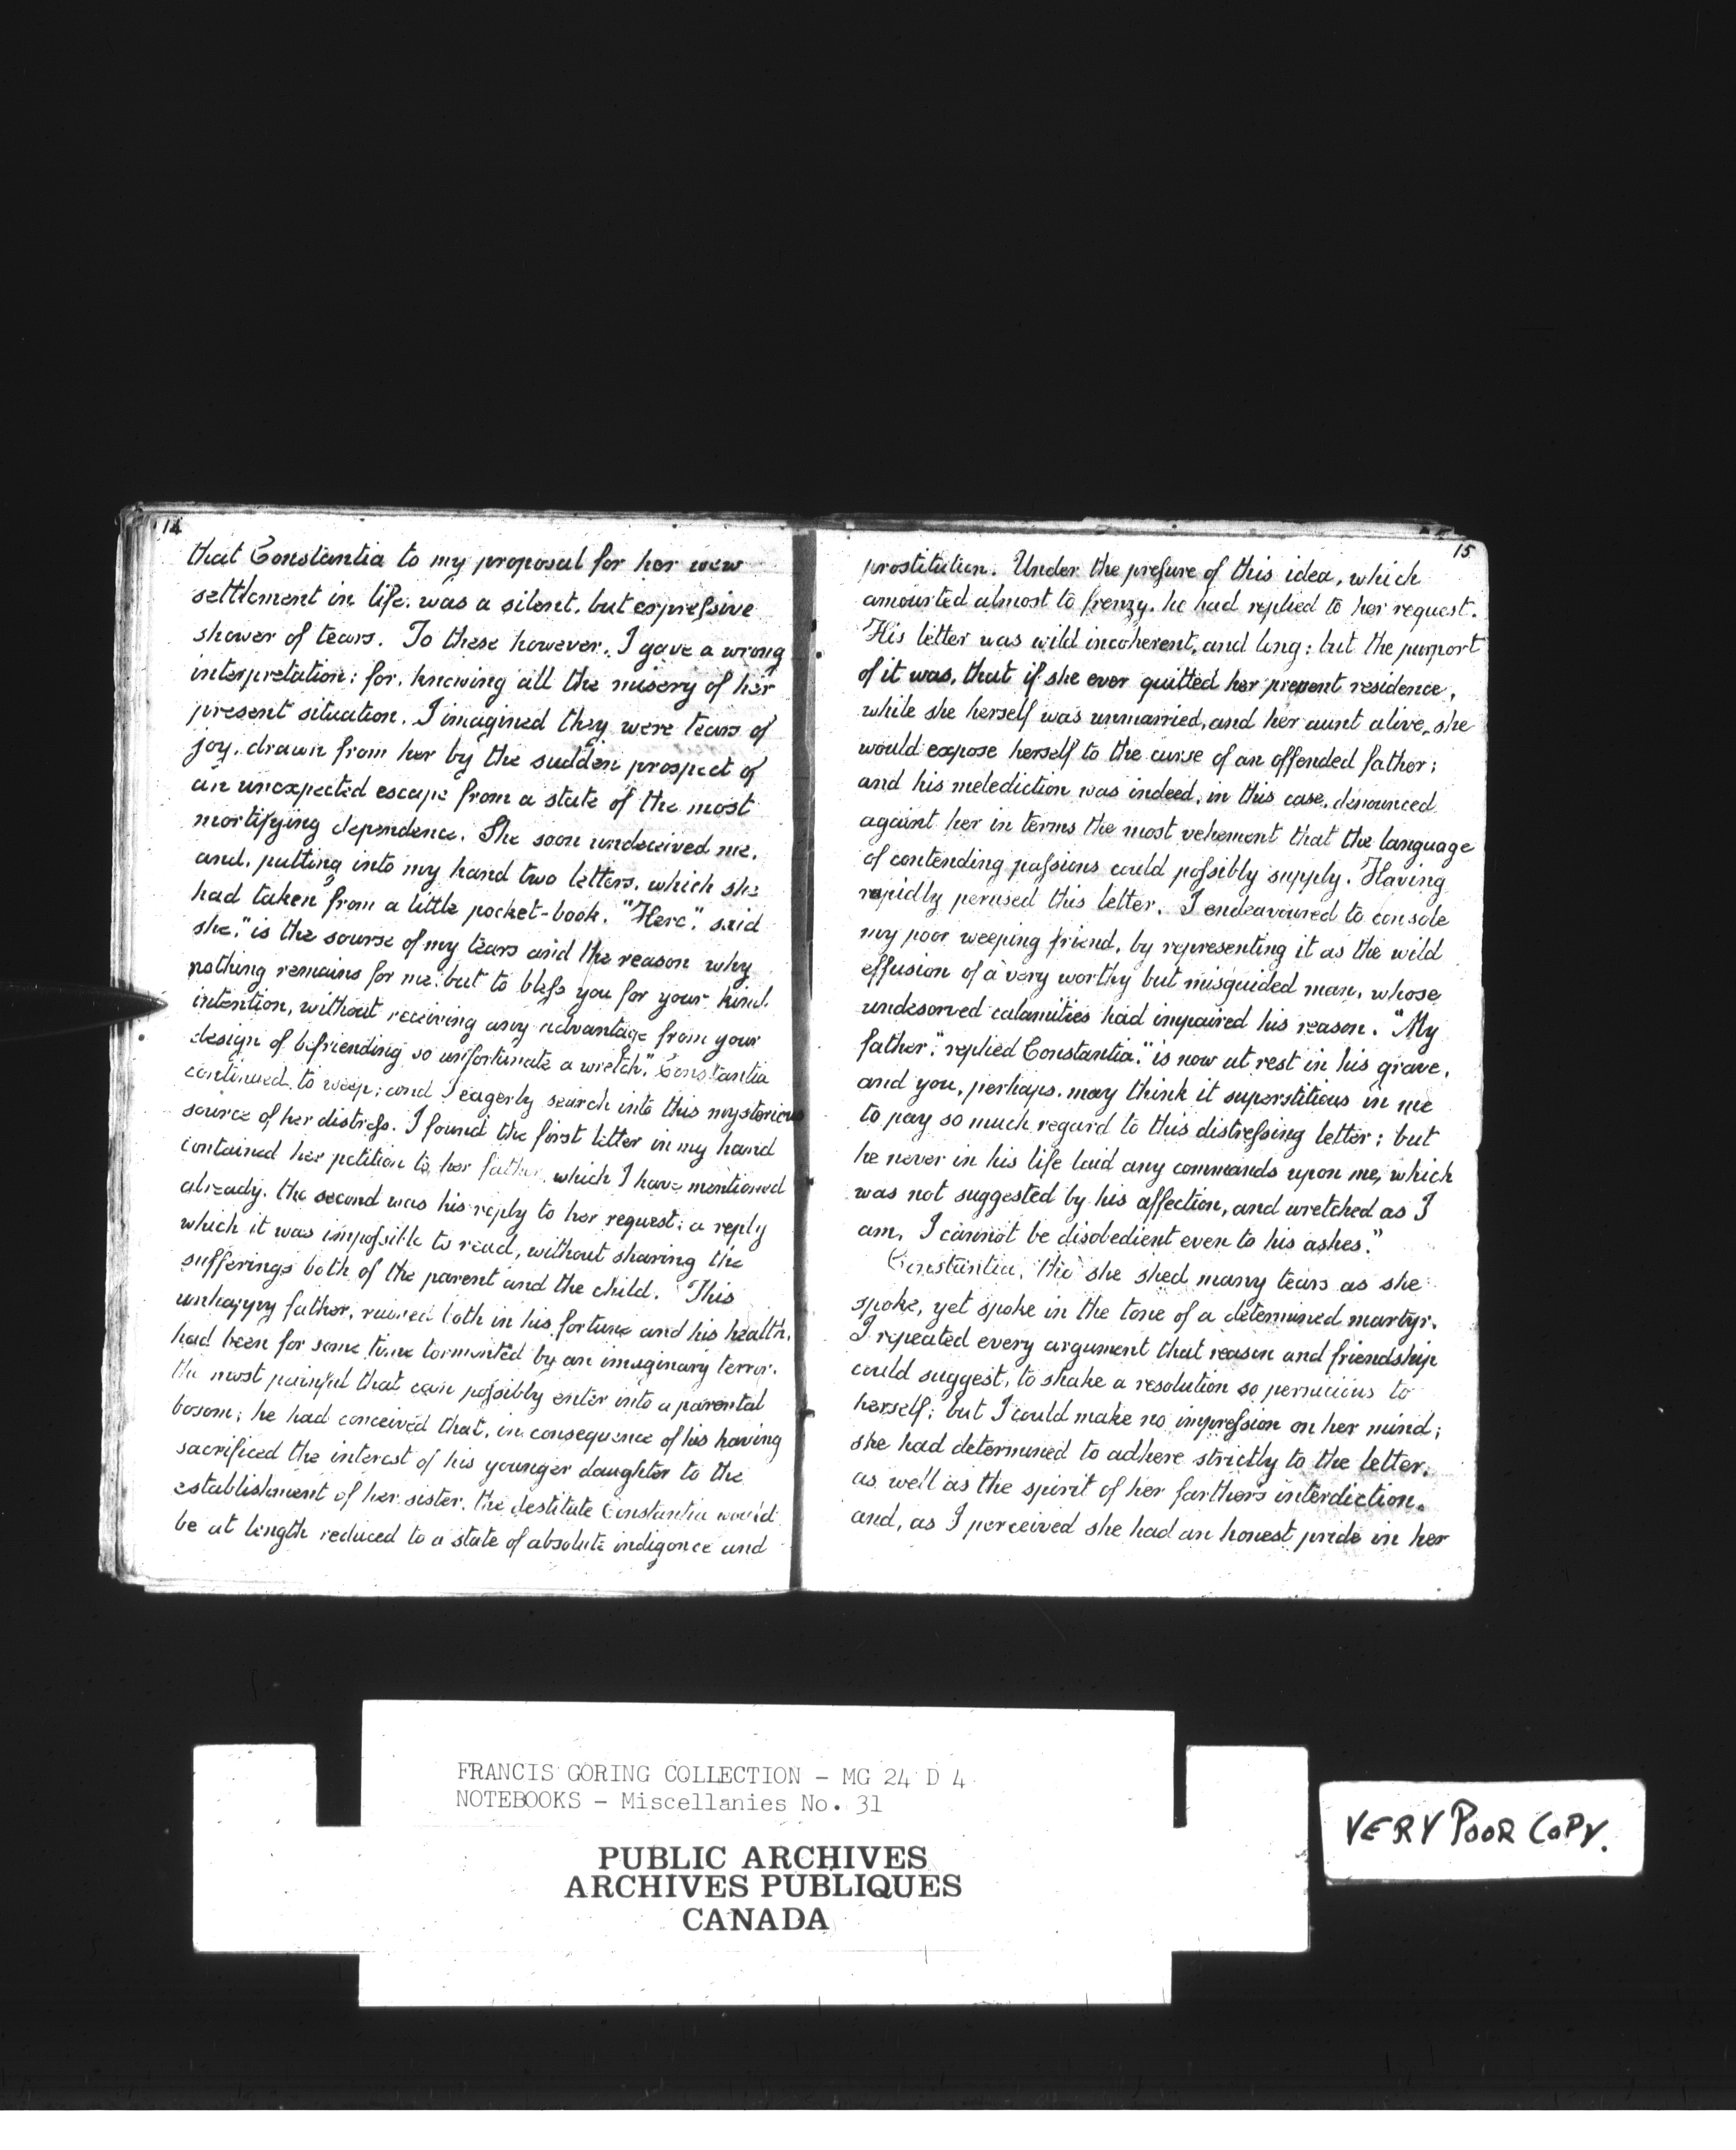 14
that Constantia to my proposal for her new
settlement in life, was a silent, but expressive
shower of tears. To these however, I gave a wrong
interpretation; for, knowing all the misery of her
present situation, I imagined they were tears of
joy, drawn from her by the sudden prospect of
an unexpected escape from a state of the most
mortifying dependence. She soon undeceived me,
and, putting into my hand two letters, which she
had taken from a little pocket-book. "Here," said
she, "is the sourse of my tears and the reason why
nothing remains for me but to bless you for your kind
intention, without receiving any advantage from your
design of befriending so unfortunate a wretch." Constantia
continued to weep; and I eagerly search into this mysterious
source of her distress. I found the first letter in my hand
contained her petition to her father, which I have mentioned
already. the second was his reply to her request; a reply
which it was impossible to read, without sharing the
sufferings both of the parent and the child. This
unhappy father, ruined both in his fortune and his health,
had been for some time tormented by an imaginary terror,
the most painful that can possibly enter into a parental
bosom; he had conceived that, in consequence of his having
sacrificed the interest of his younger daughter to the
establishment of her sister, the destitute Constantia would
be at length reduced to a state of absolute indigence and
15
prostitution. Under the presure of this idea, which
amounted almost to frenzy, he had replied to her request.
His letter was wild incoherent, and long: but the purport
of it was, that if she ever quitted her present residence,
while she herself was unmarried, and her aunt alive, she
would expose herself to the curse of an offended father;
and his melediction was indeed, in this case, denounced
againt her in terms the most vehement that the language
of contending passions could possibly supply. Having
rapidly perused this letter, I endeavoured to console
my poor weeping friend, by representing it as the wild
effusion of a very worthy but misguided man, whose
undeserved calamities had impaired his reason. "My
father," replied Constantia, "is now at rest in his grave,
and you, perhaps, may think it superstitious in me
to pay so much regard to this distressing letter; but
he never in his life laid any commands upon me, which
was not suggested by his affection, and wretched as I
am, I cannot be disobedient even to his ashes."
Constantia, tho' she shed many tears as she
spoke, yet spoke in the tone of a determined martyr.
I repeated every argument that reason and friendship
could suggest, to shake a resolution so pernicious to
herself; but I could make no impression on her mind;
she had determined to adhere strictly to the letter,
as well as the spirit of her farthers interdiction,
and, as I perceived she had an honest pride in her
FRANCIS GORING COLLECTION - MG 24 D 4
NOTEBOOKS - Miscellanies No. 31
PUBLIC ARCHIVES
ARCHIVES PUBLIQUES
CANADA
VERY POOR COPY.